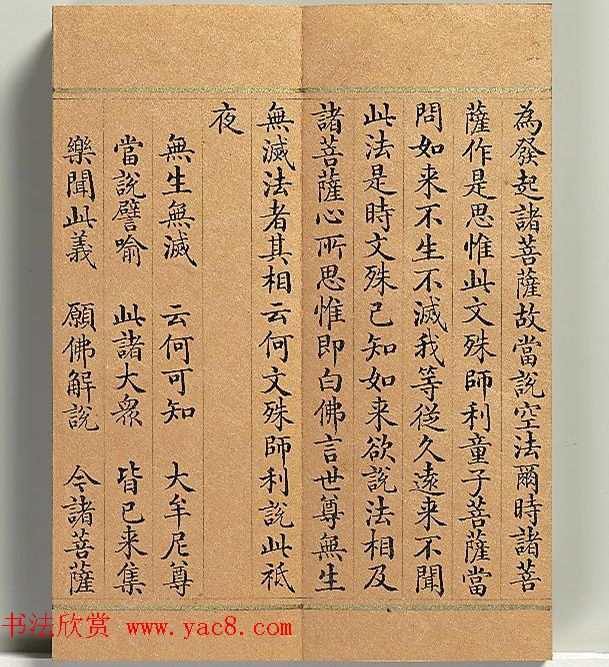 為發起諸菩薩故當說空法爾時諸菩
薩作是思惟此文殊師利童子菩薩當
問如来不生不滅我等從久遠来不聞
此法是時文殊已知如来欲說法相及
諸菩薩心所思惟即白佛言世尊無生
無滅法者其相云何文殊師利說此祇
夜
無生無滅 云何可知 大牟尼尊
當說譬喻 此諸大衆 皆已来集
樂聞此義 願佛解說 今諸菩薩
书法欣赏 www.yac8.com